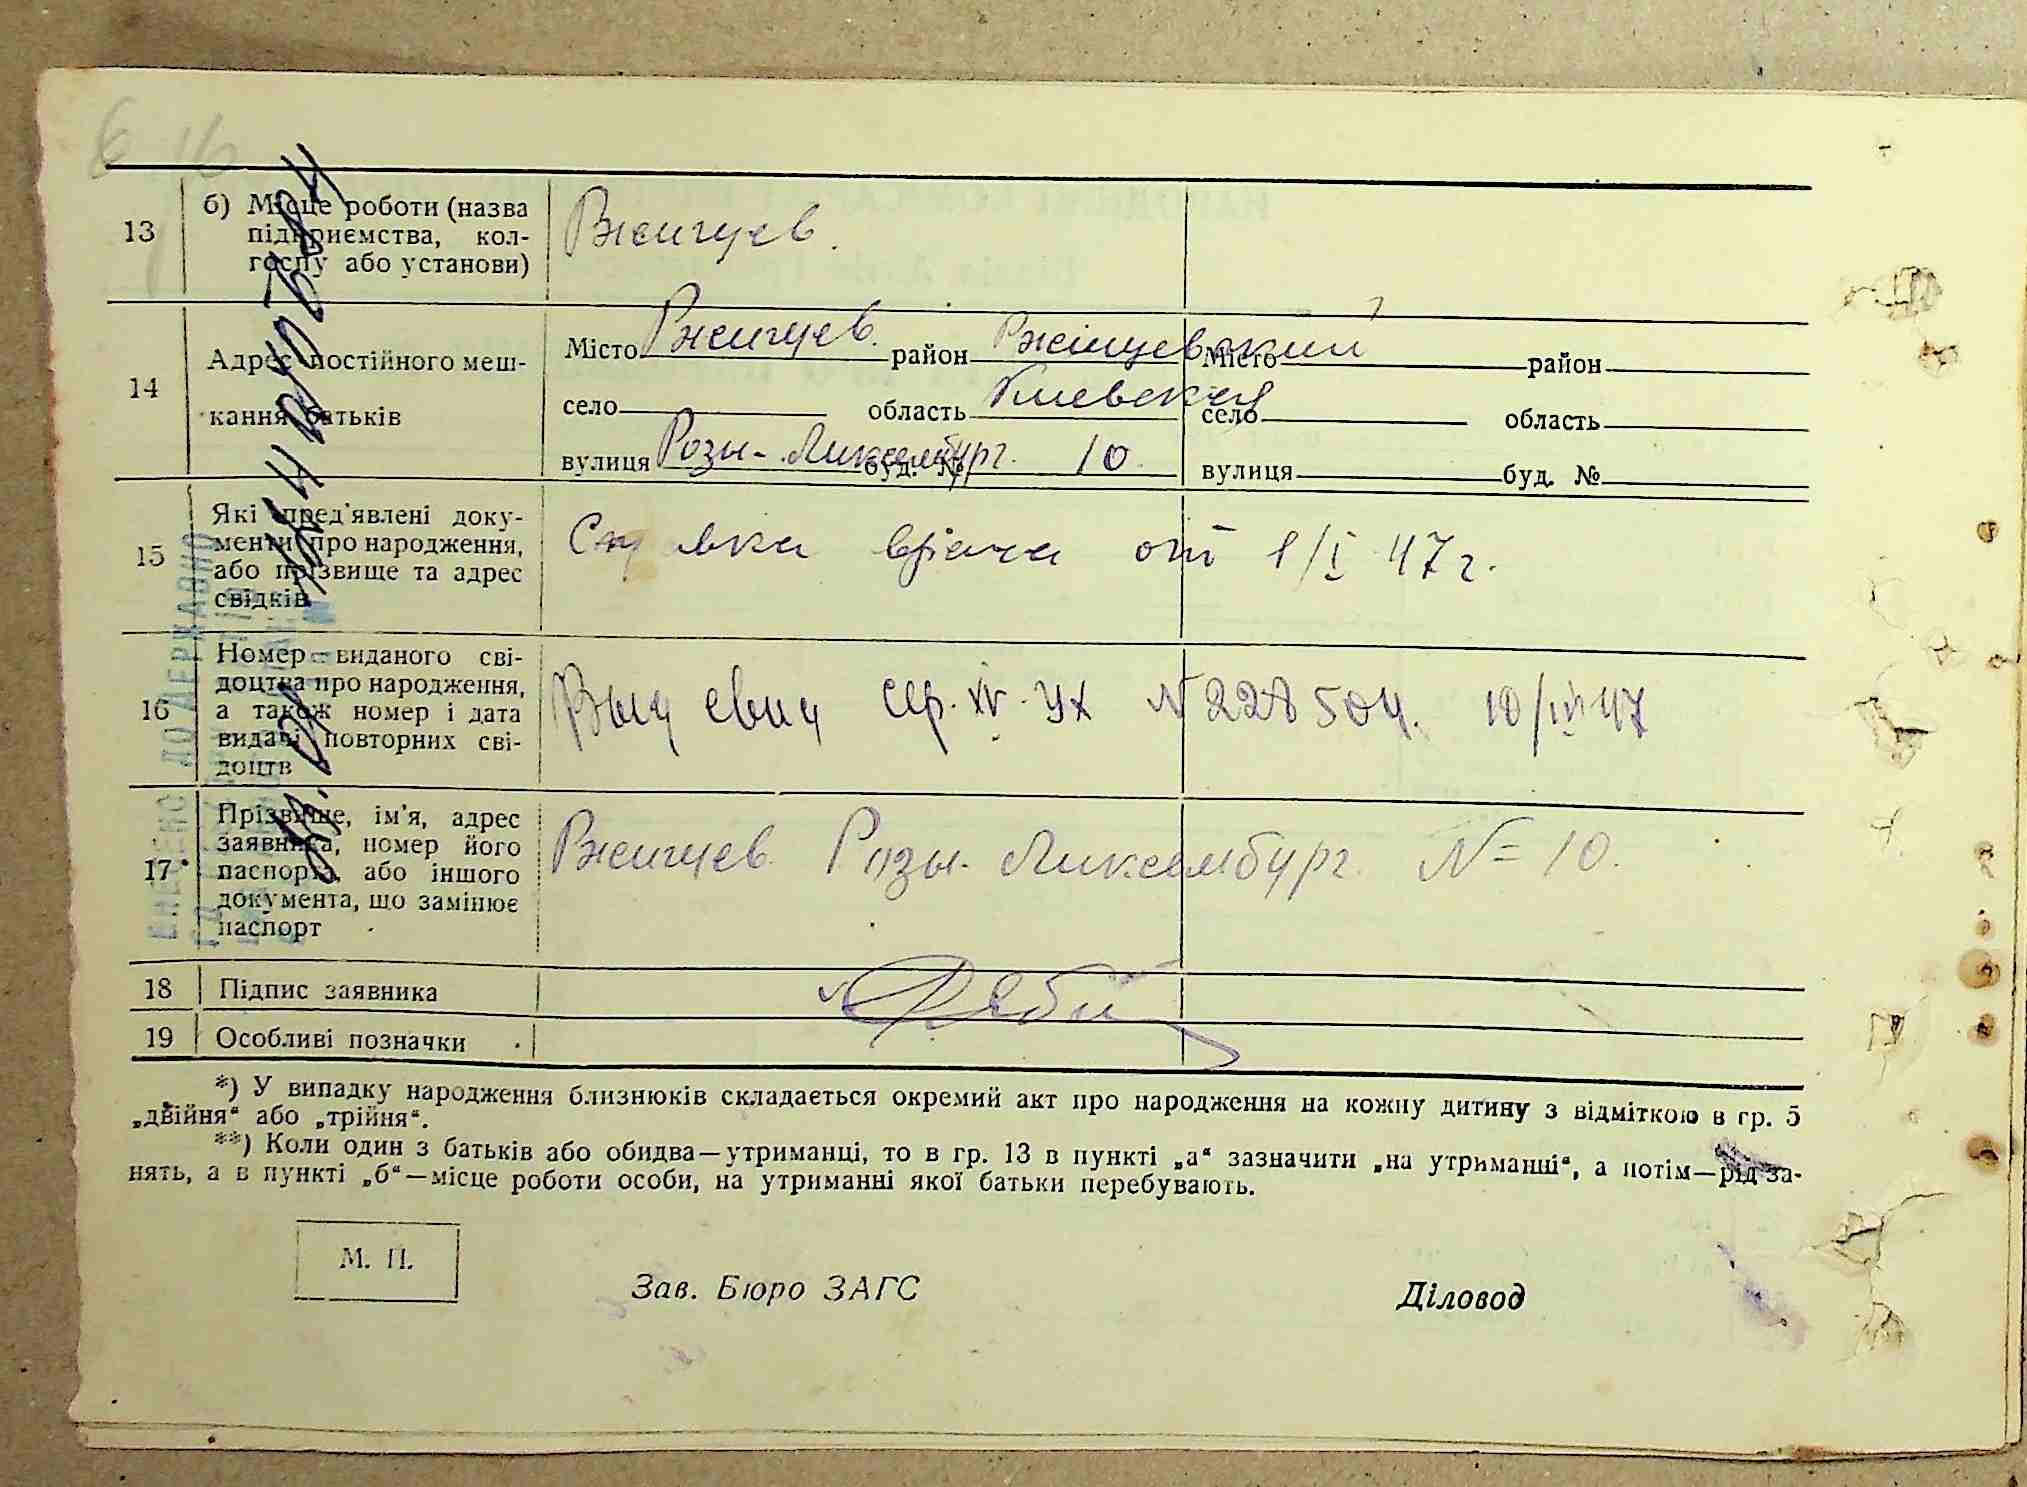 13 б) Місце роботи (назва
підприємства, кол-
госпу або установи)
Ржищев.
14 Адрес постійного меш-
кання батьків
Місто Ржищев. район Ржищевский
село область Киевская
вулиця Розы-Люксембург. буд. № 10.
Місто район
село область
вулиця буд. №
15 Які пред'явлені доку-
менти про народження,
або прізвище та адрес
свідків
Справка врача от 1/I 47 г.
16 Номер виданого сві-
доцтва про народження,
а також номер і дата
видачі повторних сві-
доцтв
Выд свид сер. IV-УХ № 228504. 10/III 47
17 Прізвище, ім'я, адрес
заявника, номер його
паспорта або іншого
документа, що замінює
паспорт
Ржищев Розы-Люксембург. № 10.
18 Підпис заявника
19 Особливі позначки
*) У випадку народження близнюків складається окремий акт про народження на кожну дитину з відміткою в гр. 5
„двійня“ або „трійня“.
**) Коли один з батьків або обидва—утриманці, то в гр. 13 в пункті „а“ зазначити „на утриманні“, а потім—рід за-
нять, а в пункті „б“—місце роботи особи, на утриманні якої батьки перебувають.
М. П.
Зав. Бюро ЗАГС
Діловод